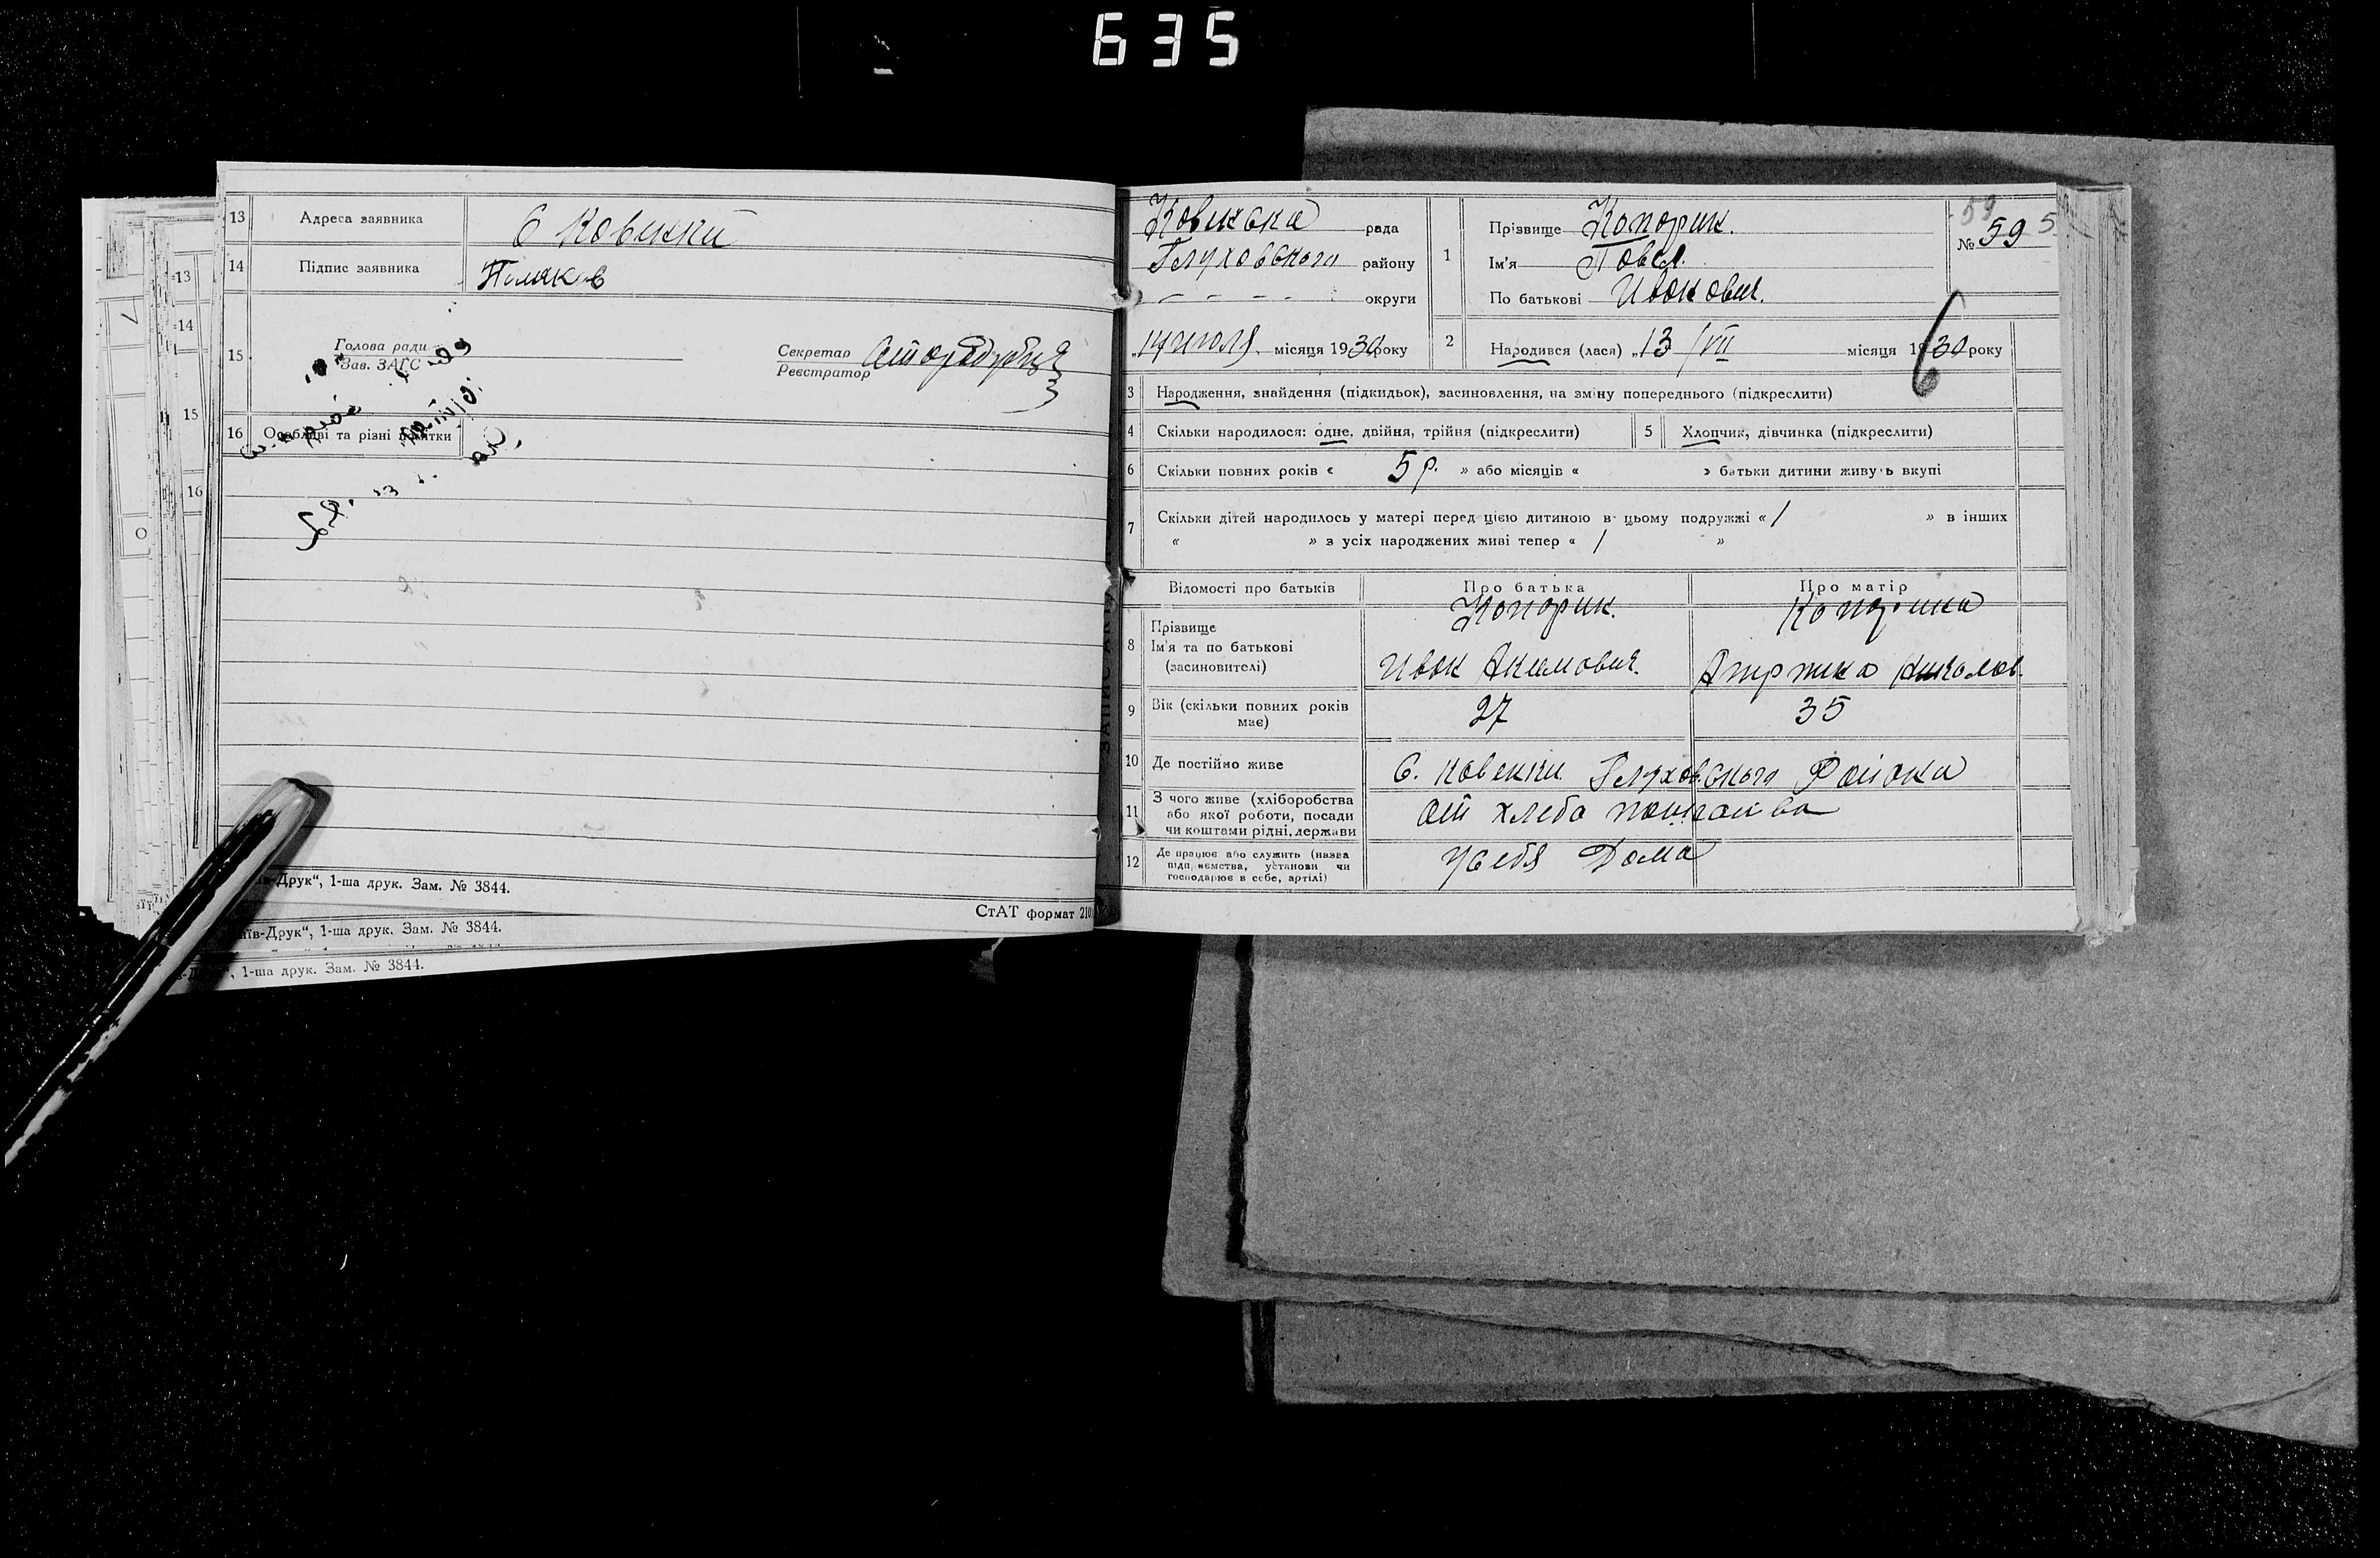 635
13 Адреса заявника С Ковенки
14 Підпис заявника
15 Голова ради
Зав. ЗАГС
Секретар
Реєстратор
16 Особливі та різні помітки
-Друк“, 1-ша друк. Зам. № 3844.
СтАТ формат 210
їв-Друк“, 1-ша друк. Зам. № 3844.
, 1-ша друк. Зам. № 3844.
рада
Глуховского району
округи
„14 июля місяця 1930 року
№ 59 5
59
1 Прізвище Копорик.
Ім'я Повел.
По батькові Иванович.
2 Народився (лася) „13/VII місяця 1930 року
3 Народження, знайдення (підкидьок), засиновлення, на зміну попереднього (підкреслити)
4 Скільки народилося: одне, двійня, трійня (підкреслити)
5 Хлопчик, дівчинка (підкреслити)
6 Скільки повних років « 5 р. » або місяців « » батьки дитини живуть вкупі
7 Скільки дітей народилось у матері перед цією дитиною в цьому подружжі « / » в інших
« » з усіх народжених живі тепер « / »
Відомості про батьків Про батька Про матір
8 Прізвище Копорик.
Ім'я та по батькові Иван Акимович.
(засновителі)
9 Вік (скільки повних років має) 27 35
10 Де постійно живе С. Ковенки Глуховского Района
11 З чого живе (хліборобства
або якої роботи, посади
чи коштами рідні, держави
От хлеба
12 Де працює або служить (назва
підприємства, установи чи
господарює в себе, артілі)
У себя Дома